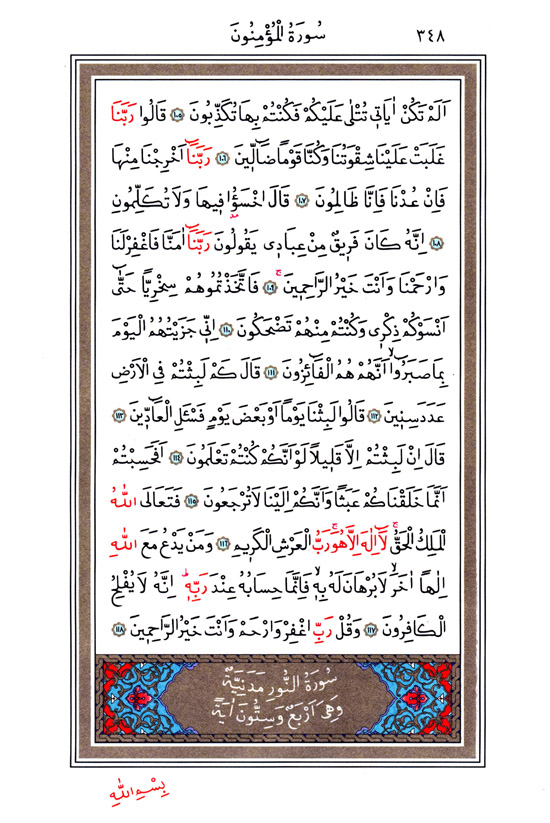 ٣٤٨ سُورَةُ الْمُؤْمِنُونَ
اَلَمْ تَكُنْ اٰيَاتٖي تُتْلٰى عَلَيْكُمْ فَكُنْتُمْ بِهَا تُكَذِّبُونَ ﴿١٠٥﴾ قَالُوا رَبَّنَا
غَلَبَتْ عَلَيْنَا شِقْوَتُنَا وَكُنَّا قَوْمًا ضَٓالّٖينَ ﴿١٠٦﴾ رَبَّنَٓا اَخْرِجْنَا مِنْهَا
فَاِنْ عُدْنَا فَاِنَّا ظَالِمُونَ ﴿١٠٧﴾ قَالَ اخْسَؤُ۫ا فٖيهَا وَلَا تُكَلِّمُونِ
﴿١٠٨﴾ اِنَّهُ كَانَ فَرٖيقٌ مِنْ عِبَادٖي يَقُولُونَ رَبَّنَٓا اٰمَنَّا فَاغْفِرْ لَنَا
وَارْحَمْنَا وَاَنْتَ خَيْرُ الرَّاحِمٖينَ ﴿١٠٩﴾ فَاتَّخَذْتُمُوهُمْ سِخْرِيًّا حَتّٰٓى
اَنْسَوْكُمْ ذِكْرٖي وَكُنْتُمْ مِنْهُمْ تَضْحَكُونَ ﴿١١٠﴾ اِنّٖي جَزَيْتُهُمُ الْيَوْمَ
بِمَا صَبَرُٓوا اَنَّهُمْ هُمُ الْفَٓائِزُونَ ﴿١١١﴾ قَالَ كَمْ لَبِثْتُمْ فِي الْاَرْضِ
عَدَدَ سِنٖينَ ﴿١١٢﴾ قَالُوا لَبِثْنَا يَوْمًا اَوْ بَعْضَ يَوْمٍ فَسْـَٔلِ الْعَٓادّٖينَ ﴿١١٣﴾
قَالَ اِنْ لَبِثْتُمْ اِلَّا قَلٖيلًا لَوْ اَنَّكُمْ كُنْتُمْ تَعْلَمُونَ ﴿١١٤﴾ اَفَحَسِبْتُمْ
اَنَّمَا خَلَقْنَاكُمْ عَبَثًا وَاَنَّكُمْ اِلَيْنَا لَا تُرْجَعُونَ ﴿١١٥﴾ فَتَعَالَى اللّٰهُ
الْمَلِكُ الْحَقُّۚ لَٓا اِلٰهَ اِلَّا هُوَۚ رَبُّ الْعَرْشِ الْكَرٖيمِ ﴿١١٦﴾ وَمَنْ يَدْعُ مَعَ اللّٰهِ
اِلٰهًا اٰخَرَۙ لَا بُرْهَانَ لَهُ بِهٖۙ فَاِنَّمَا حِسَابُهُ عِنْدَ رَبِّهٖؕ اِنَّهُ لَا يُفْلِحُ
الْكَافِرُونَ ﴿١١٧﴾ وَقُلْ رَبِّ اغْفِرْ وَارْحَمْ وَاَنْتَ خَيْرُ الرَّاحِمٖينَ ﴿١١٨﴾
سُورَةُ النُّورِ مَدَنِيَّةٌ
وَهِيَ اَرْبَعٌ وَسِتُّونَ اٰيَةً
بِسْمِ اللّٰهِ